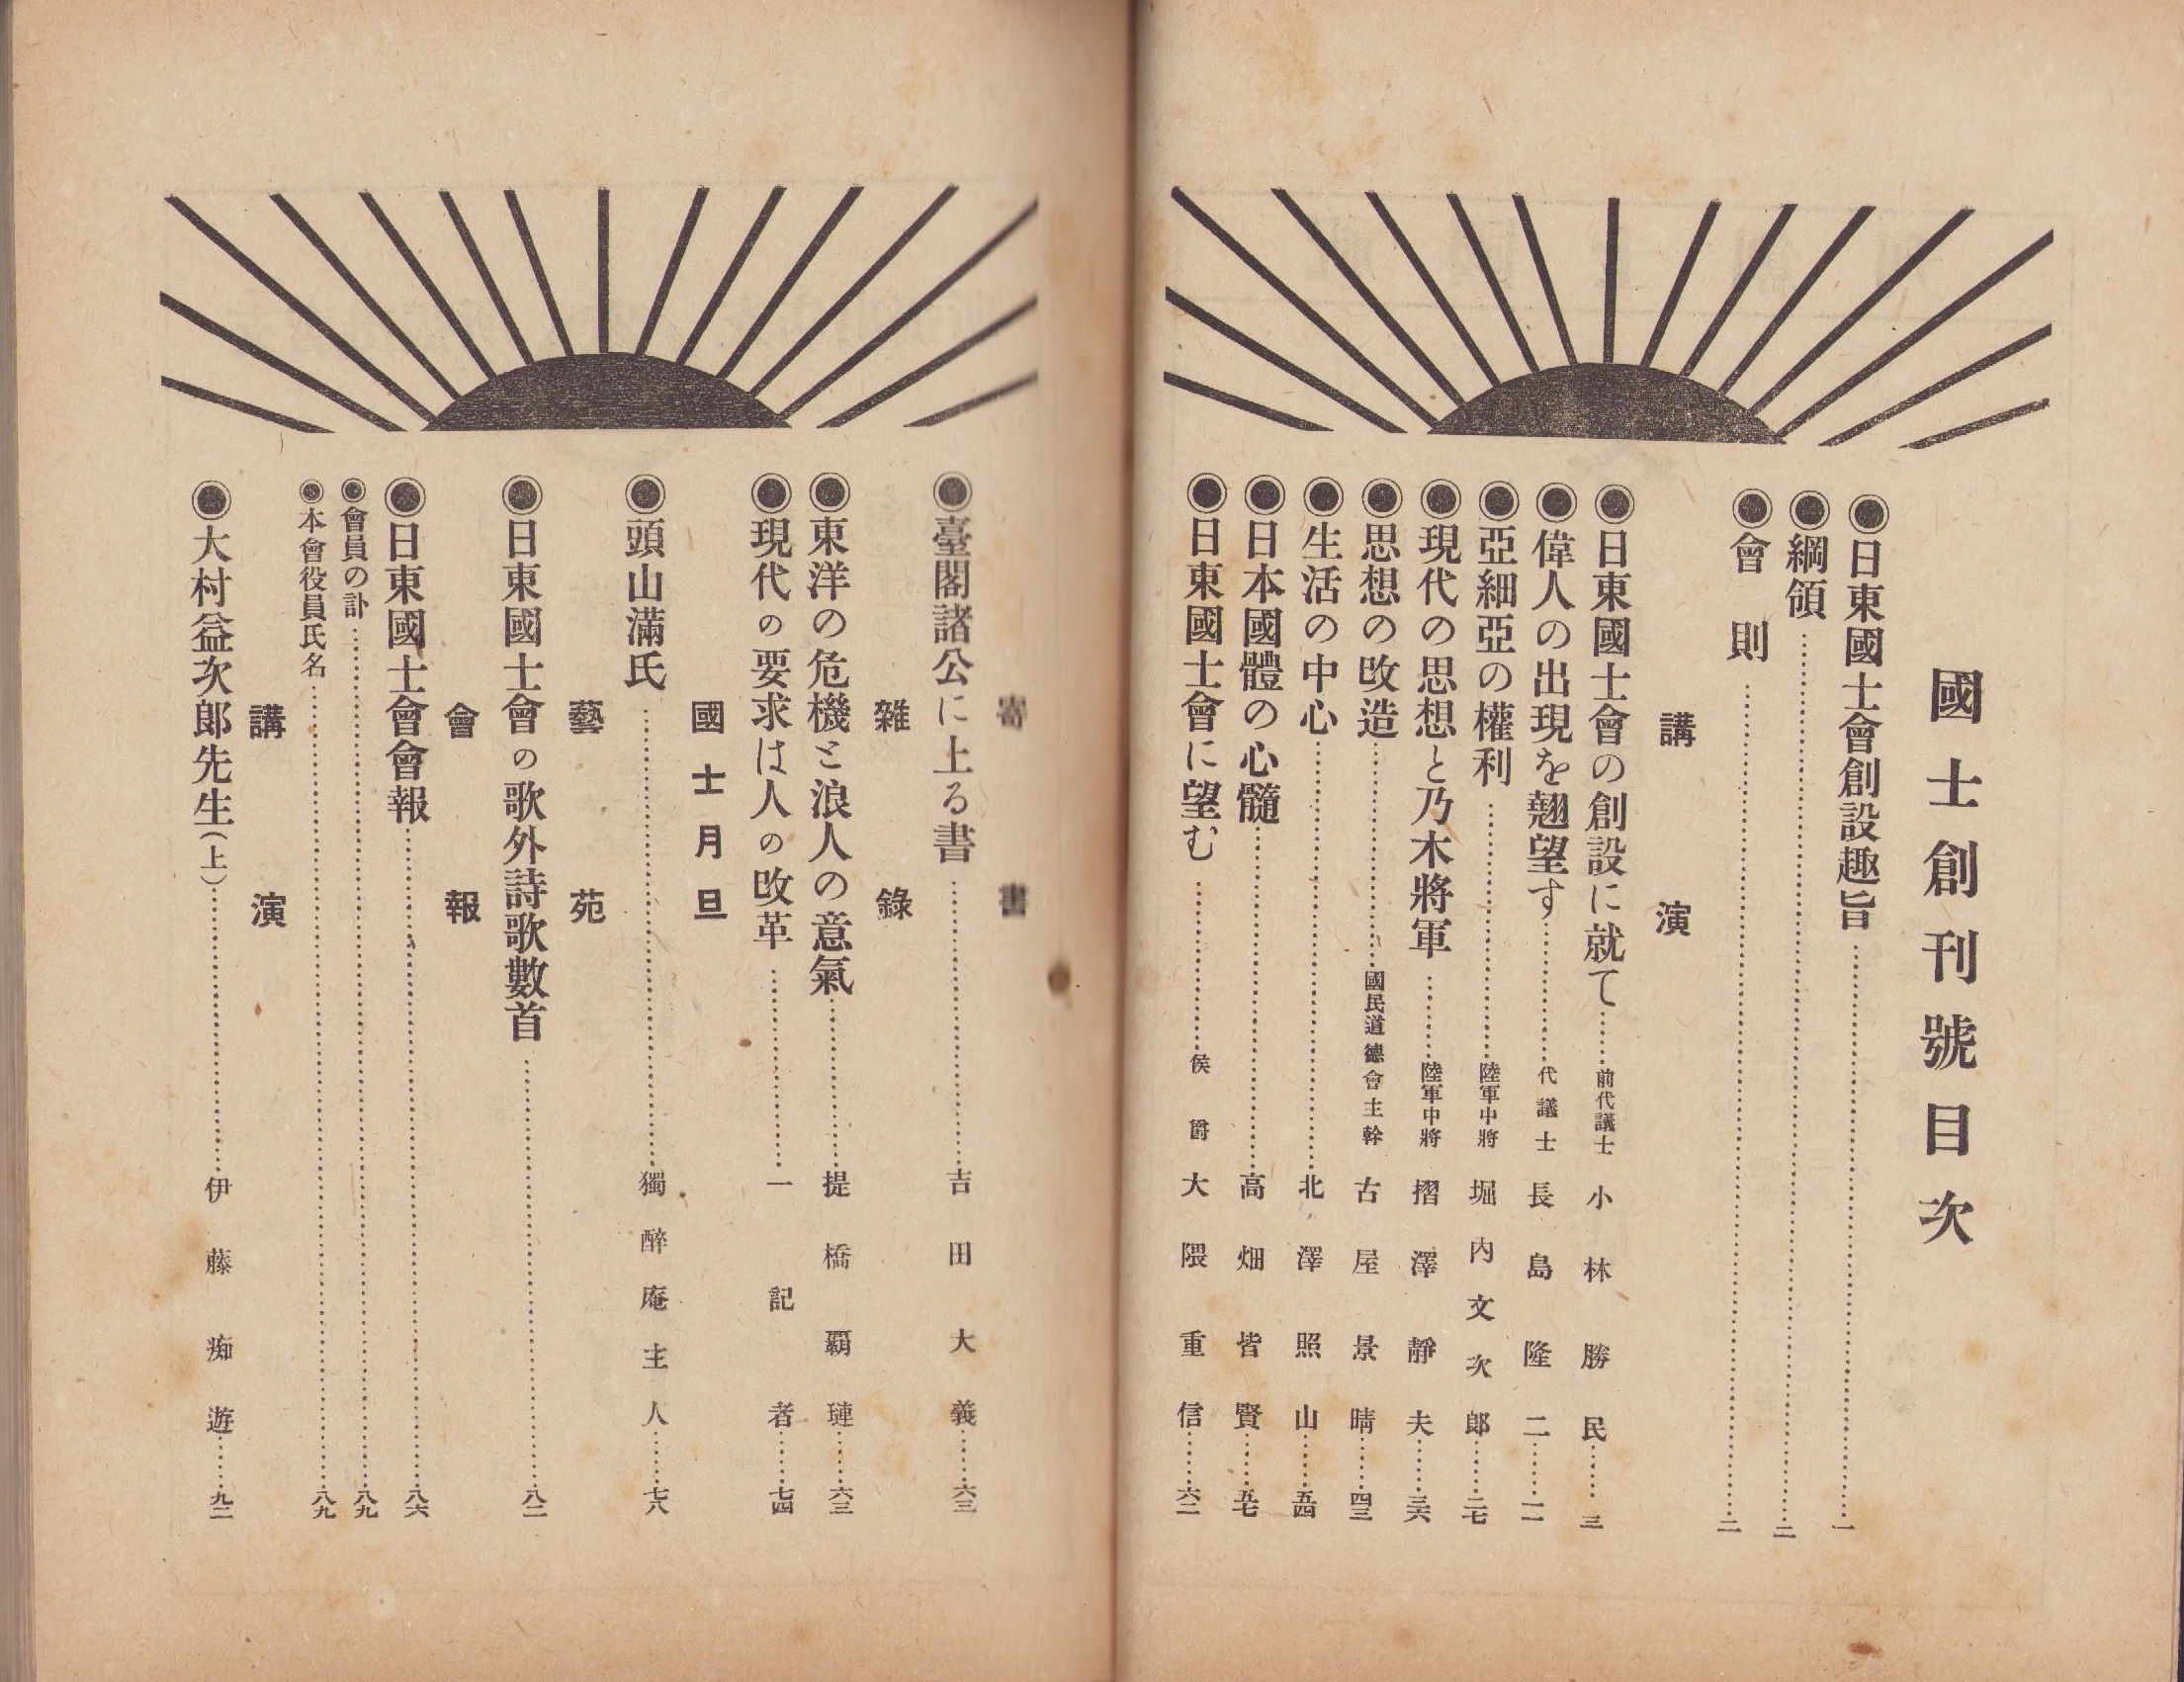 國士創刊號目次
◉日東國士會創設趣旨……一
◉綱領……二
◉會則……二
講演
◉日東國士會の創設に就て……前代議士 小林勝民……三
◉偉人の出現を翹望す……代議士 長島隆二……一一
◉亞細亞の權利……陸軍中將 堀内文次郎……二七
◉現代の思想と乃木將軍……陸軍中將 摺澤靜夫……三六
◉思想の改造……國民道德會主幹 古屋景晴……四三
◉生活の中心……北澤照山……五四
◉日本國體の心髓……高畑皆賢……五七
◉日東國士會に望む……侯爵 大隈重信……六二
寄書
◉臺閣諸公に上る書……吉田大義……六三
雜錄
◉東洋の危機と浪人の意氣……提橋覇璉……六三
◉現代の要求は人の改革……一記者……七四
國士月旦
◉頭山滿氏……獨醉庵主人……七八
藝苑
◉日東國士會の歌外詩歌數首……八二
會報
◉日東國士會會報……八六
◉會員の訃……八九
◉本會役員氏名……八九
講演
◉大村益次郎先生(上)……伊藤痴遊……九二